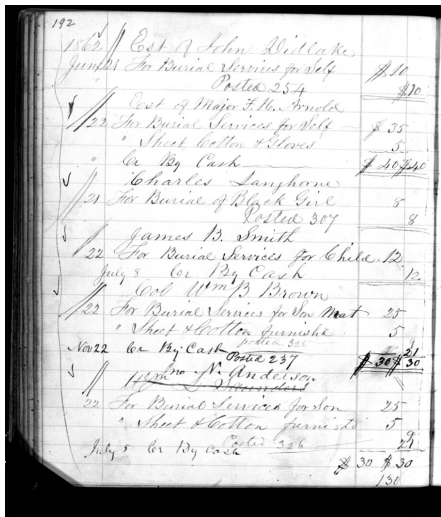 192
1862 Est of John Didlake
June 21 For Burial Services for Self $10
Posted 254 $10
Est of Major F. H. Arnold
22 For Burial Services for Self $35
" Sheet Cotton & Gloves 5
" Cr By Cash $40 $40
Charles Langhorne
21 For Burial of Black Girl 8
Posted 307 8
James B. Smith
22 For Burial Services for Child 12
July 8 Cr By Cash 12
Col Wm B Brown
22 For Burial Services for Son Mat 25
" Sheet & Cotton furnishd 5
posted 326
Nov 22 Cr By Cash 21
Posted 237 $30 $30
N. Anderson
Saunders
22 For Burial Services for Son 25
" Sheet & Cotton furnishd 5
Posted 326 9
July 5 Cr By Cash 21
$30 $30
130